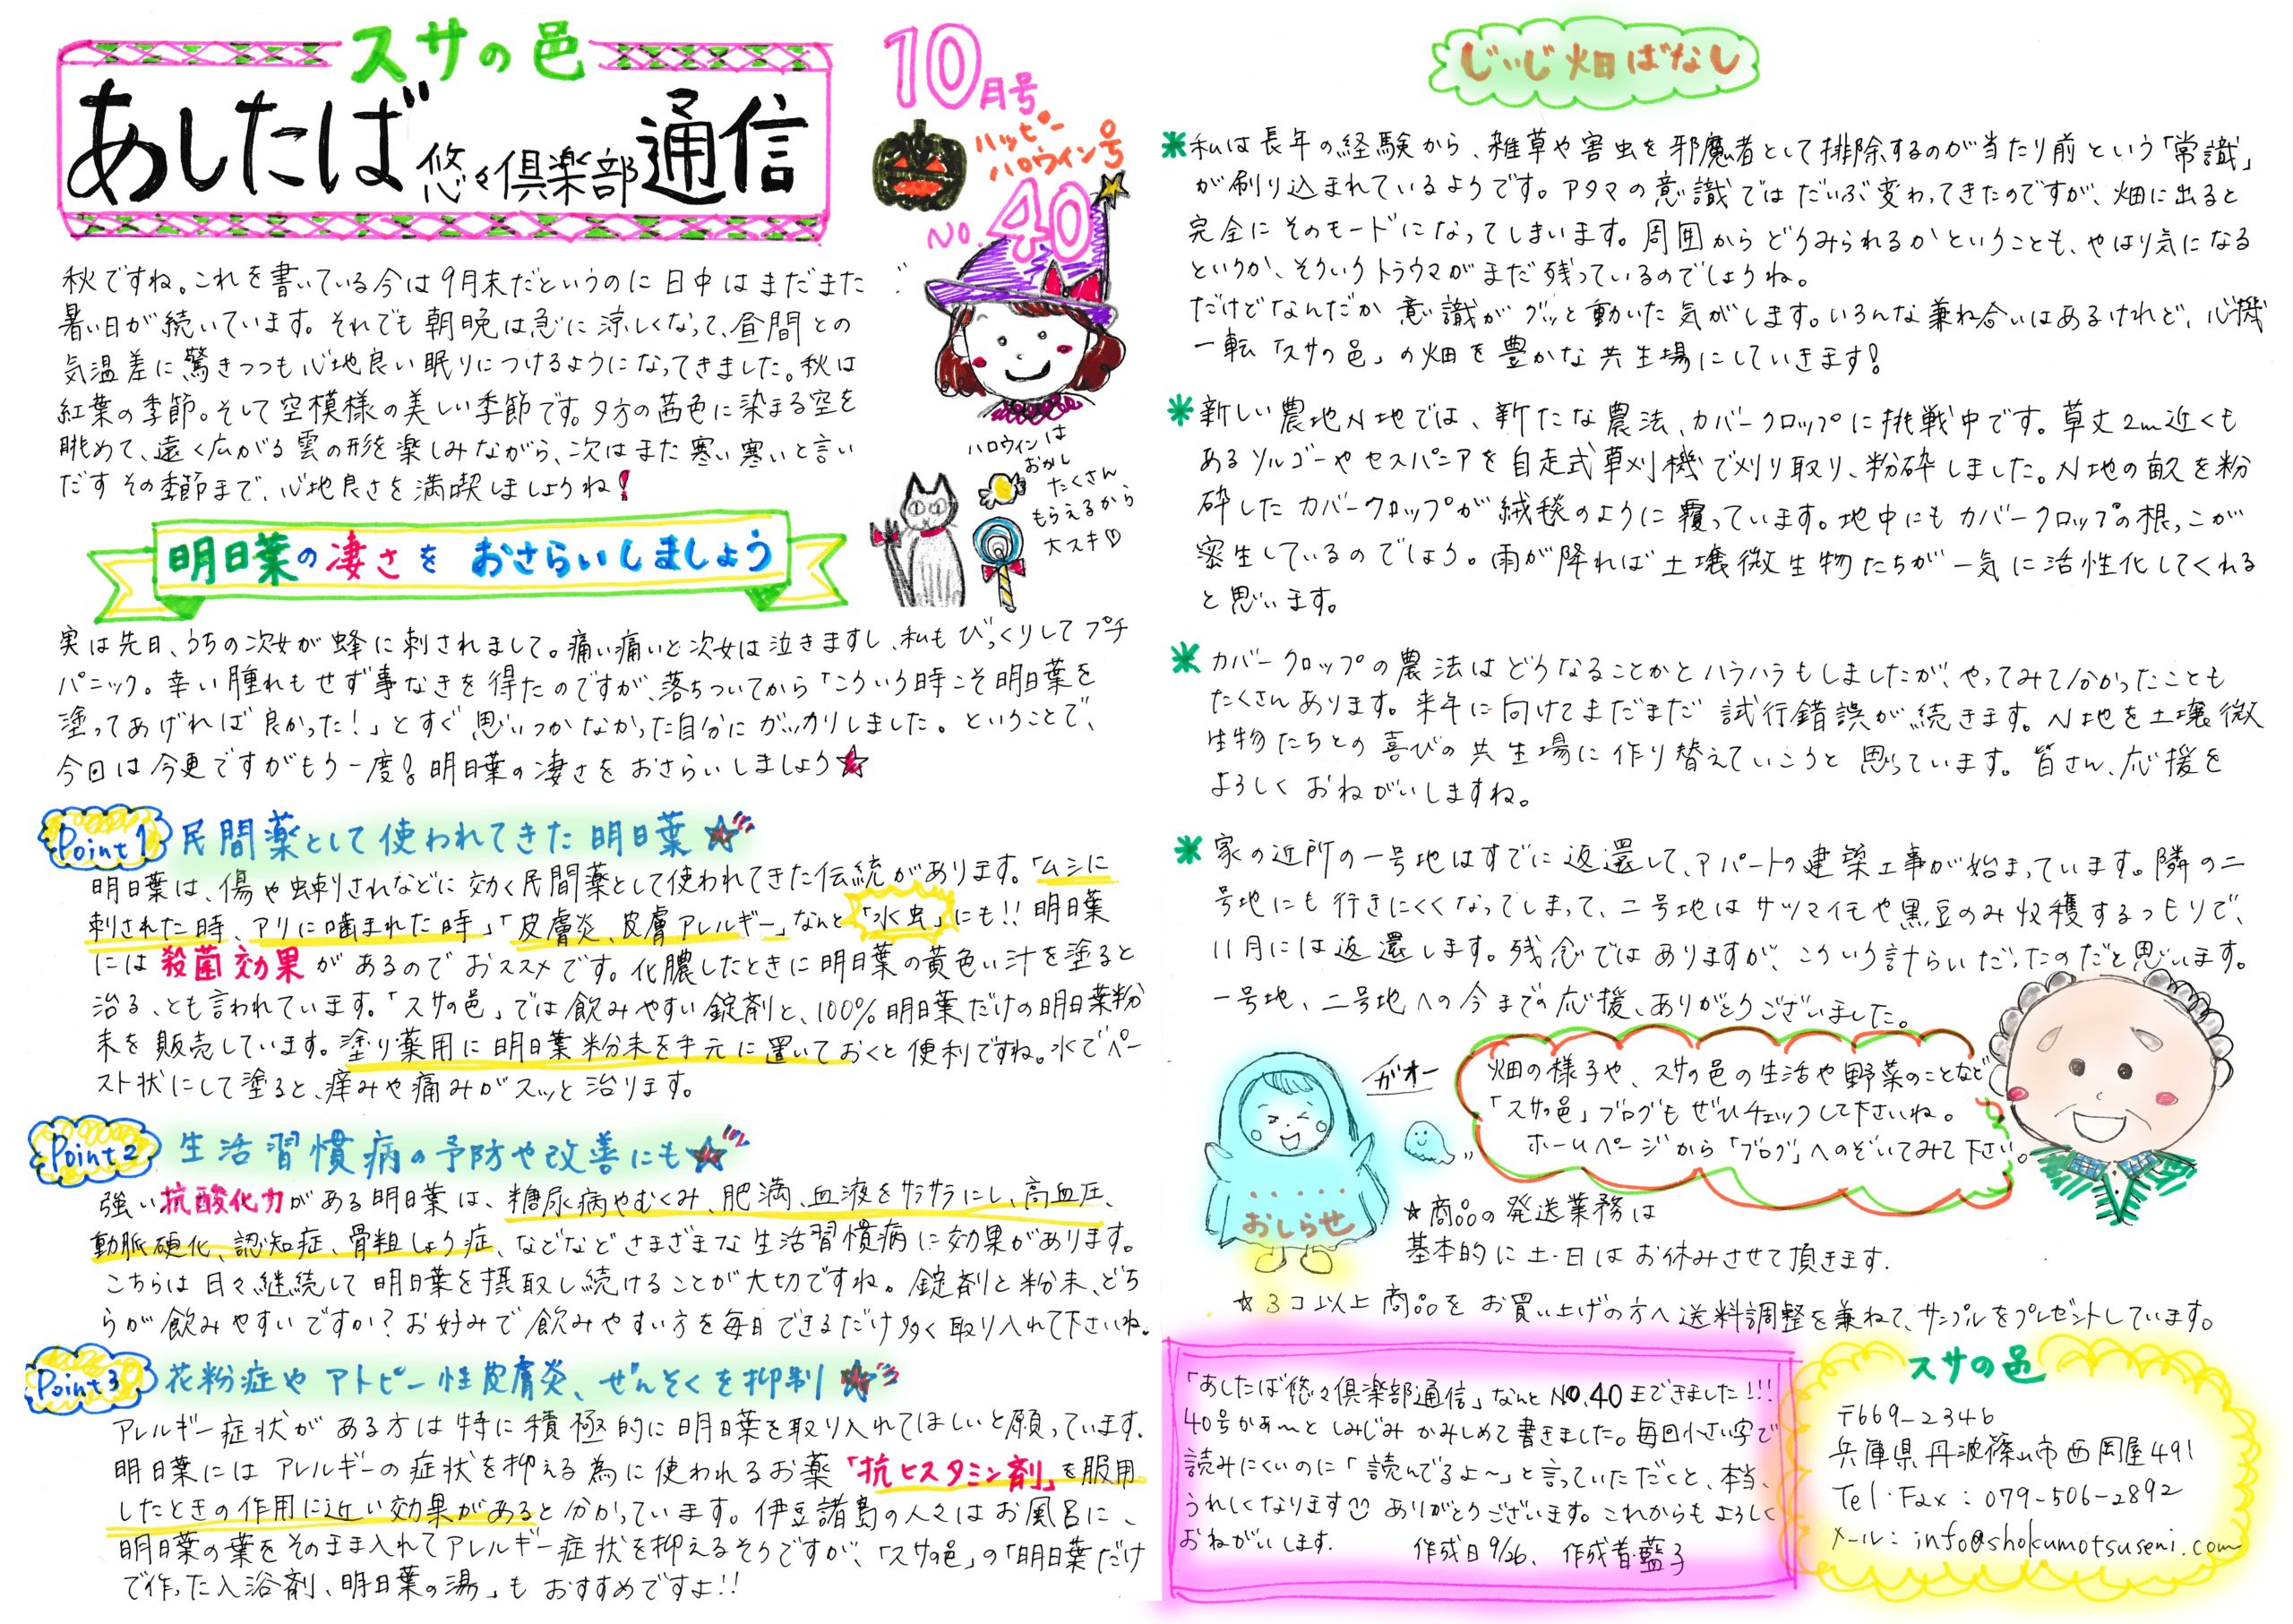 スサの邑
あしたば悠々倶楽部通信
10月号
ハッピー
ハロウィン号
No.40
秋ですね。これを書いている今は9月末だというのに日中はまだまた
暑い日が続いています。それでも朝晩は急に涼しくなって、昼間との
気温差に驚きつつも心地良い眠りにつけるようになってきました。秋は
紅葉の季節。そして空模様の美しい季節です。夕方の茜色に染まる空を
眺めて、遠く広がる雲の形を楽しみながら、次はまた寒い寒いと言い
だすその季節まで、心地良さを満喫しましょうね!
ハロウィンは
おかし
たくさん
もらえるから
大スキ♡
明日葉の凄さをおさらいしましょう
実は先日、うちの次女が蜂に刺されまして。痛い痛いと次女は泣きますし、私もびっくりしてプチ
パニック。幸い腫れもせず事なきを得たのですが、落ちついてから「こういう時こそ明日葉を
塗ってあげれば良かった!」とすぐ思いつかなかった自分にガッカリしました。ということで、
今日は今更ですがもう一度!明日葉の凄さをおさらいしましょう☆
Point1 民間薬として使われてきた明日葉☆
明日葉は、傷や虫刺されなどに効く民間薬として使われてきた伝統があります。「ムシに
刺された時、アリに噛まれた時」「皮膚炎、皮膚アレルギー」なんと「水虫」にも!!明日葉
には殺菌効果があるのでおススメです。化膿したときに明日葉の黄色い汁を塗ると
治る、とも言われています。「スサの邑」では飲みやすい錠剤と、100%明日葉だけの明日葉粉
末を販売しています。塗り薬用に明日葉粉末を手元に置いておくと便利ですね。水でペー
スト状にして塗ると、痒みや痛みがスッと治ります。
Point2 生活習慣病の予防や改善にも☆
強い抗酸化力がある明日葉は、糖尿病やむくみ、肥満、血液をサラサラにし、高血圧、
動脈硬化、認知症、骨粗しょう症、などなどさまざまな生活習慣病に効果があります。
こちらは日々継続して明日葉を摂取し続けることが大切ですね。錠剤と粉末、どち
らが飲みやすいですか?お好みで飲みやすい方を毎日できるだけ多く取り入れて下さいね。
Point3 花粉症やアトピー性皮膚炎、ぜんそくを抑制☆
アレルギー症状がある方は特に積極的に明日葉を取り入れてほしいと願っています。
明日葉にはアレルギーの症状を抑える為に使われるお薬「抗ヒスタミン剤」を服用
したときの作用に近い効果があると分かっています。伊豆諸島の人々はお風呂に、
明日葉の葉をそのまま入れてアレルギー症状を抑えるそうですが、「スサの邑」の「明日葉だけ
で作った入浴剤、明日葉の湯」もおすすめですよ!!
じいじ畑ばなし
＊私は長年の経験から、雑草や害虫を邪魔者として排除するのが当たり前という「常識」
が刷り込まれているようです。アタマの意識ではだいぶ変わってきたのですが、畑に出ると
完全にそのモードになってしまいます。周囲からどうみられるかということも、やはり気になる
というか、そういうトラウマがまだ残っているのでしょうね。
だけどなんだか意識がグッと動いた気がします。いろんな兼ね合いはあるけれど、心機
一転「スサの邑」の畑を豊かな共生場にしていきます!
＊新しい農地N地では、新たな農法、カバークロップに挑戦中です。草丈2m近くも
あるソルゴーやセスバニアを自走式草刈機で刈り取り、粉砕しました。N地の畝を粉
砕したカバークロップが絨毯のように覆っています。地中にもカバークロップの根っこが
密生しているのでしょう。雨が降れば土壌微生物たちが一気に活性化してくれる
と思います。
＊カバークロップの農法はどうなることかとハラハラもしましたが、やってみて分かったことも
たくさんあります。来年に向けてまだまだ試行錯誤が続きます。N地を土壌微
生物たちとの喜びの共生場に作り替えていこうと思っています。皆さん、応援を
よろしくおねがいしますね。
＊家の近所の一号地はすでに返還して、アパートの建築工事が始まっています。隣の二
号地にも行きにくくなってしまって、二号地はサツマイモや黒豆のみ収穫するつもりで、
11月には返還します。残念ではありますが、こういう計らいだったのだと思います。
一号地、二号地への今までの応援、ありがとうございました。
ガオー
畑の様子や、スサの邑の生活や野菜のことなど
「スサの邑」ブログもぜひチェックして下さいね。
ホームページから「ブログ」へのぞいてみて下さい。
おしらせ
☆商品の発送業務は
基本的に土・日はお休みさせて頂きます.
☆3コ以上商品をお買い上げの方へ送料調整を兼ねて、サンプルをプレゼントしています。
「あしたば悠々倶楽部通信」なんとNO.40まできました!!!
40号かぁ〜としみじみかみしめて書きました。毎回小さい字で
読みにくいのに「読んでるよ〜」と言っていただくと、本当、
うれしくなります☺ありがとうございます。これからもよろしく
おねがいします. 作成日9/26、作成者・藍子
スサの邑
〒669-2346
兵庫県丹波篠山市西岡屋491
Tel・Fax:079-506-2892
メール:info@shokumotsuseni.com